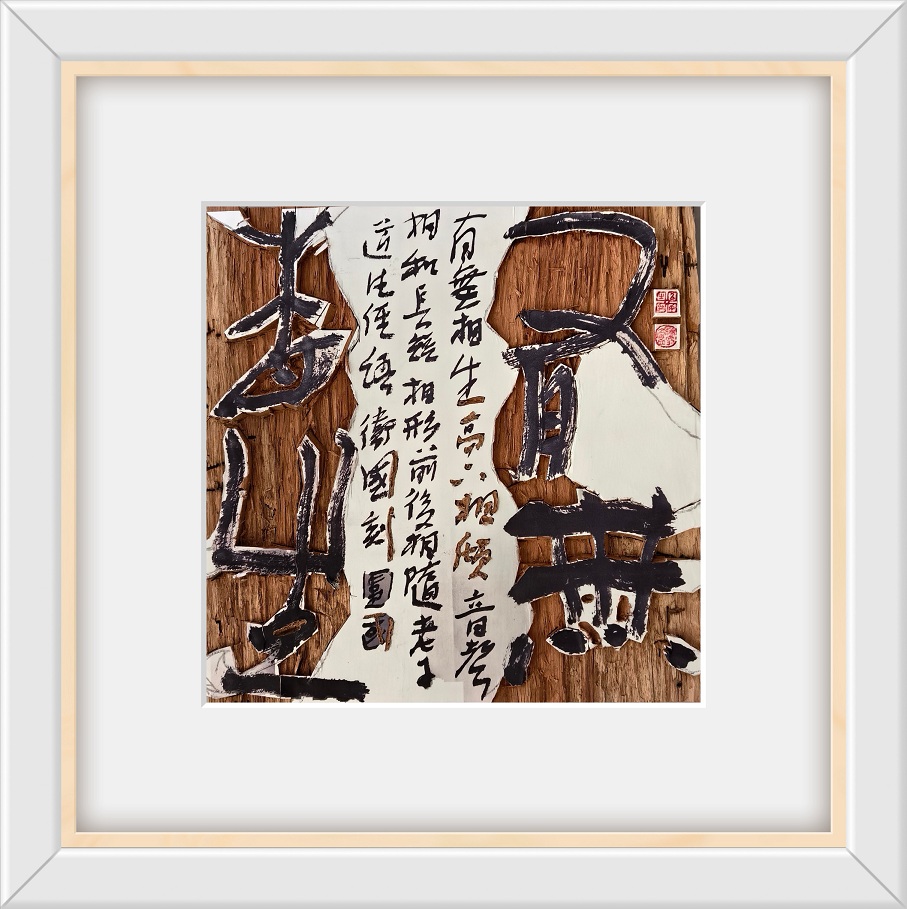 有無
有無相生高下相傾音聲
相和長短相形前後相隨老子
道經語衛國刻
相生